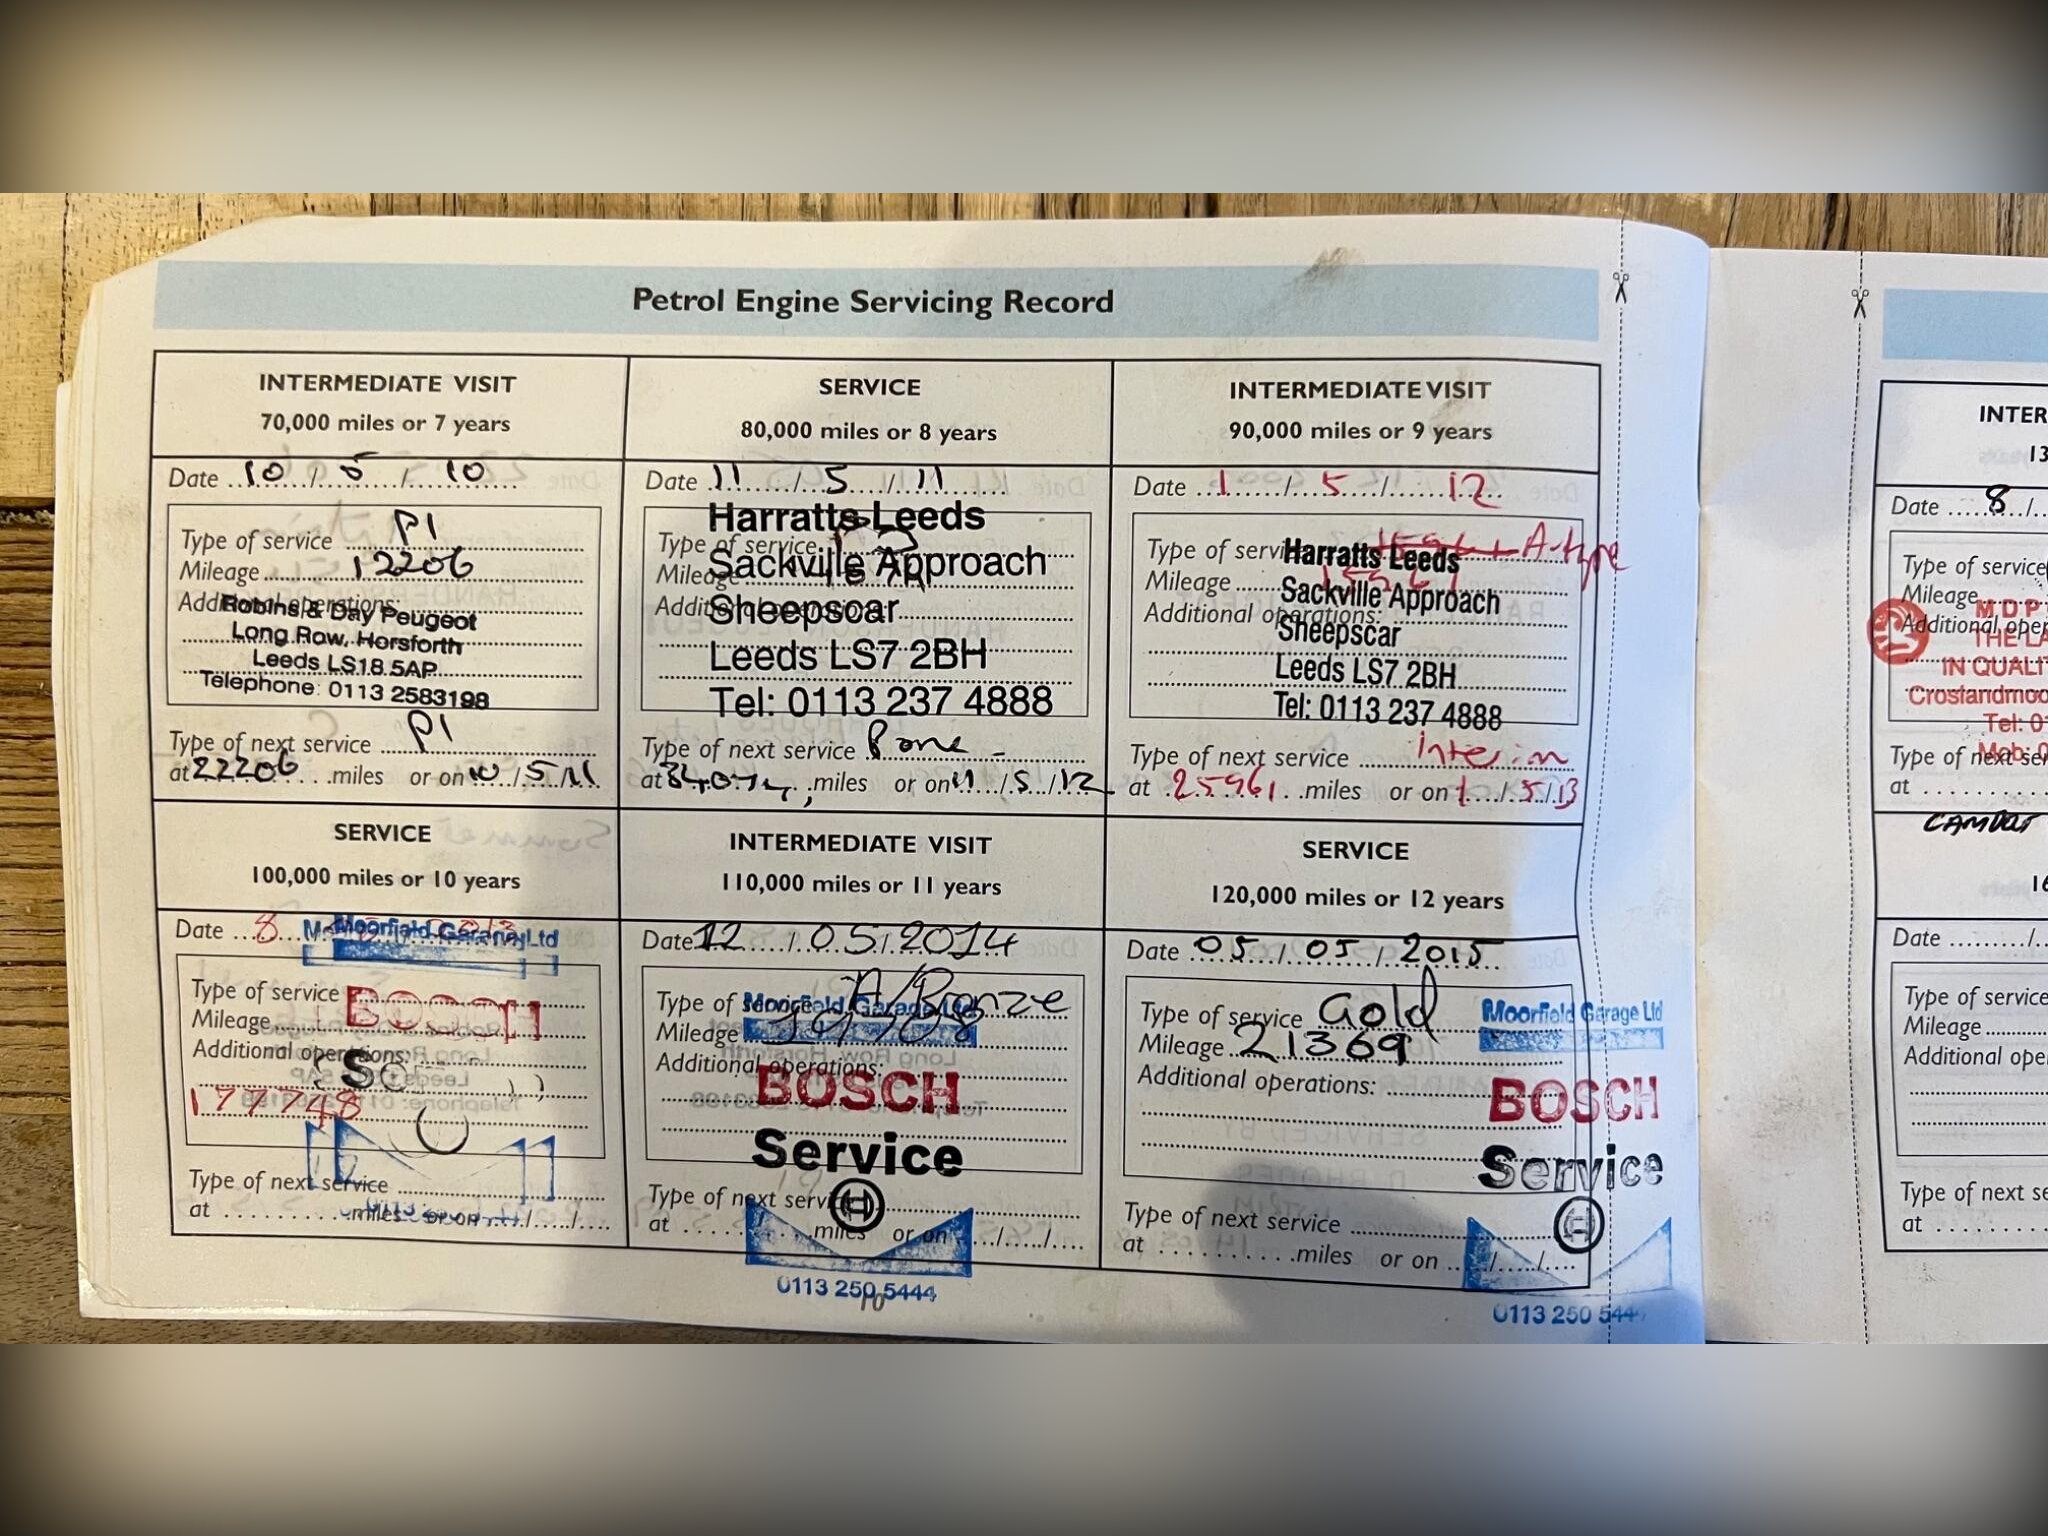 Petrol Engine Servicing Record
INTERMEDIATE VISIT
70,000 miles or 7 years
Date 10/5/10
Type of service P1
Mileage 12206
Additional operations:
Robins & Day Peugeot
Long Row, Horsforth
Leeds LS18 5AP
Telephone: 0113 2583198
Type of next service P1
at 22206 miles or on 10/5/11
SERVICE
80,000 miles or 8 years
Date 11/5/11
Harratts Leeds
Type of service
Sackville Approach
Mileage
Additional operations:
Sheepscar
Leeds LS7 2BH
Tel: 0113 237 4888
Type of next service
at miles or on 11/5/12
INTERMEDIATE VISIT
90,000 miles or 9 years
Date 1/5/12
Type of service A-type
Harratts Leeds
Mileage
Sackville Approach
Additional operations:
Sheepscar
Leeds LS7 2BH
Tel: 0113 237 4888
Type of next service Interim
at 25961 miles or on 1/5/13
SERVICE
100,000 miles or 10 years
Date 8
Moorfield Garage Ltd
Type of service
BOSCH
Mileage
Additional operations:
177748
Type of next service
at miles or on
INTERMEDIATE VISIT
110,000 miles or 11 years
Date 12/05/2014
Type of service A/Bronze
Moorfield Garage Ltd
Mileage
Additional operations:
BOSCH
Service
Type of next service
at miles or on
0113 250 5444
10
SERVICE
120,000 miles or 12 years
Date 05/05/2015
Type of service Gold
Moorfield Garage Ltd
Mileage 21369
Additional operations:
BOSCH
Service
Type of next service
at miles or on
0113 250 544
INTER
13
Date 8/
Type of service
Mileage
MDP
Additional oper
THE LA
IN QUALI
Crostandmoo
Tel: 0
Mob: 0
Type of next ser
at
CAMBELT
16
Date
Type of service
Mileage
Additional ope
Type of next se
at